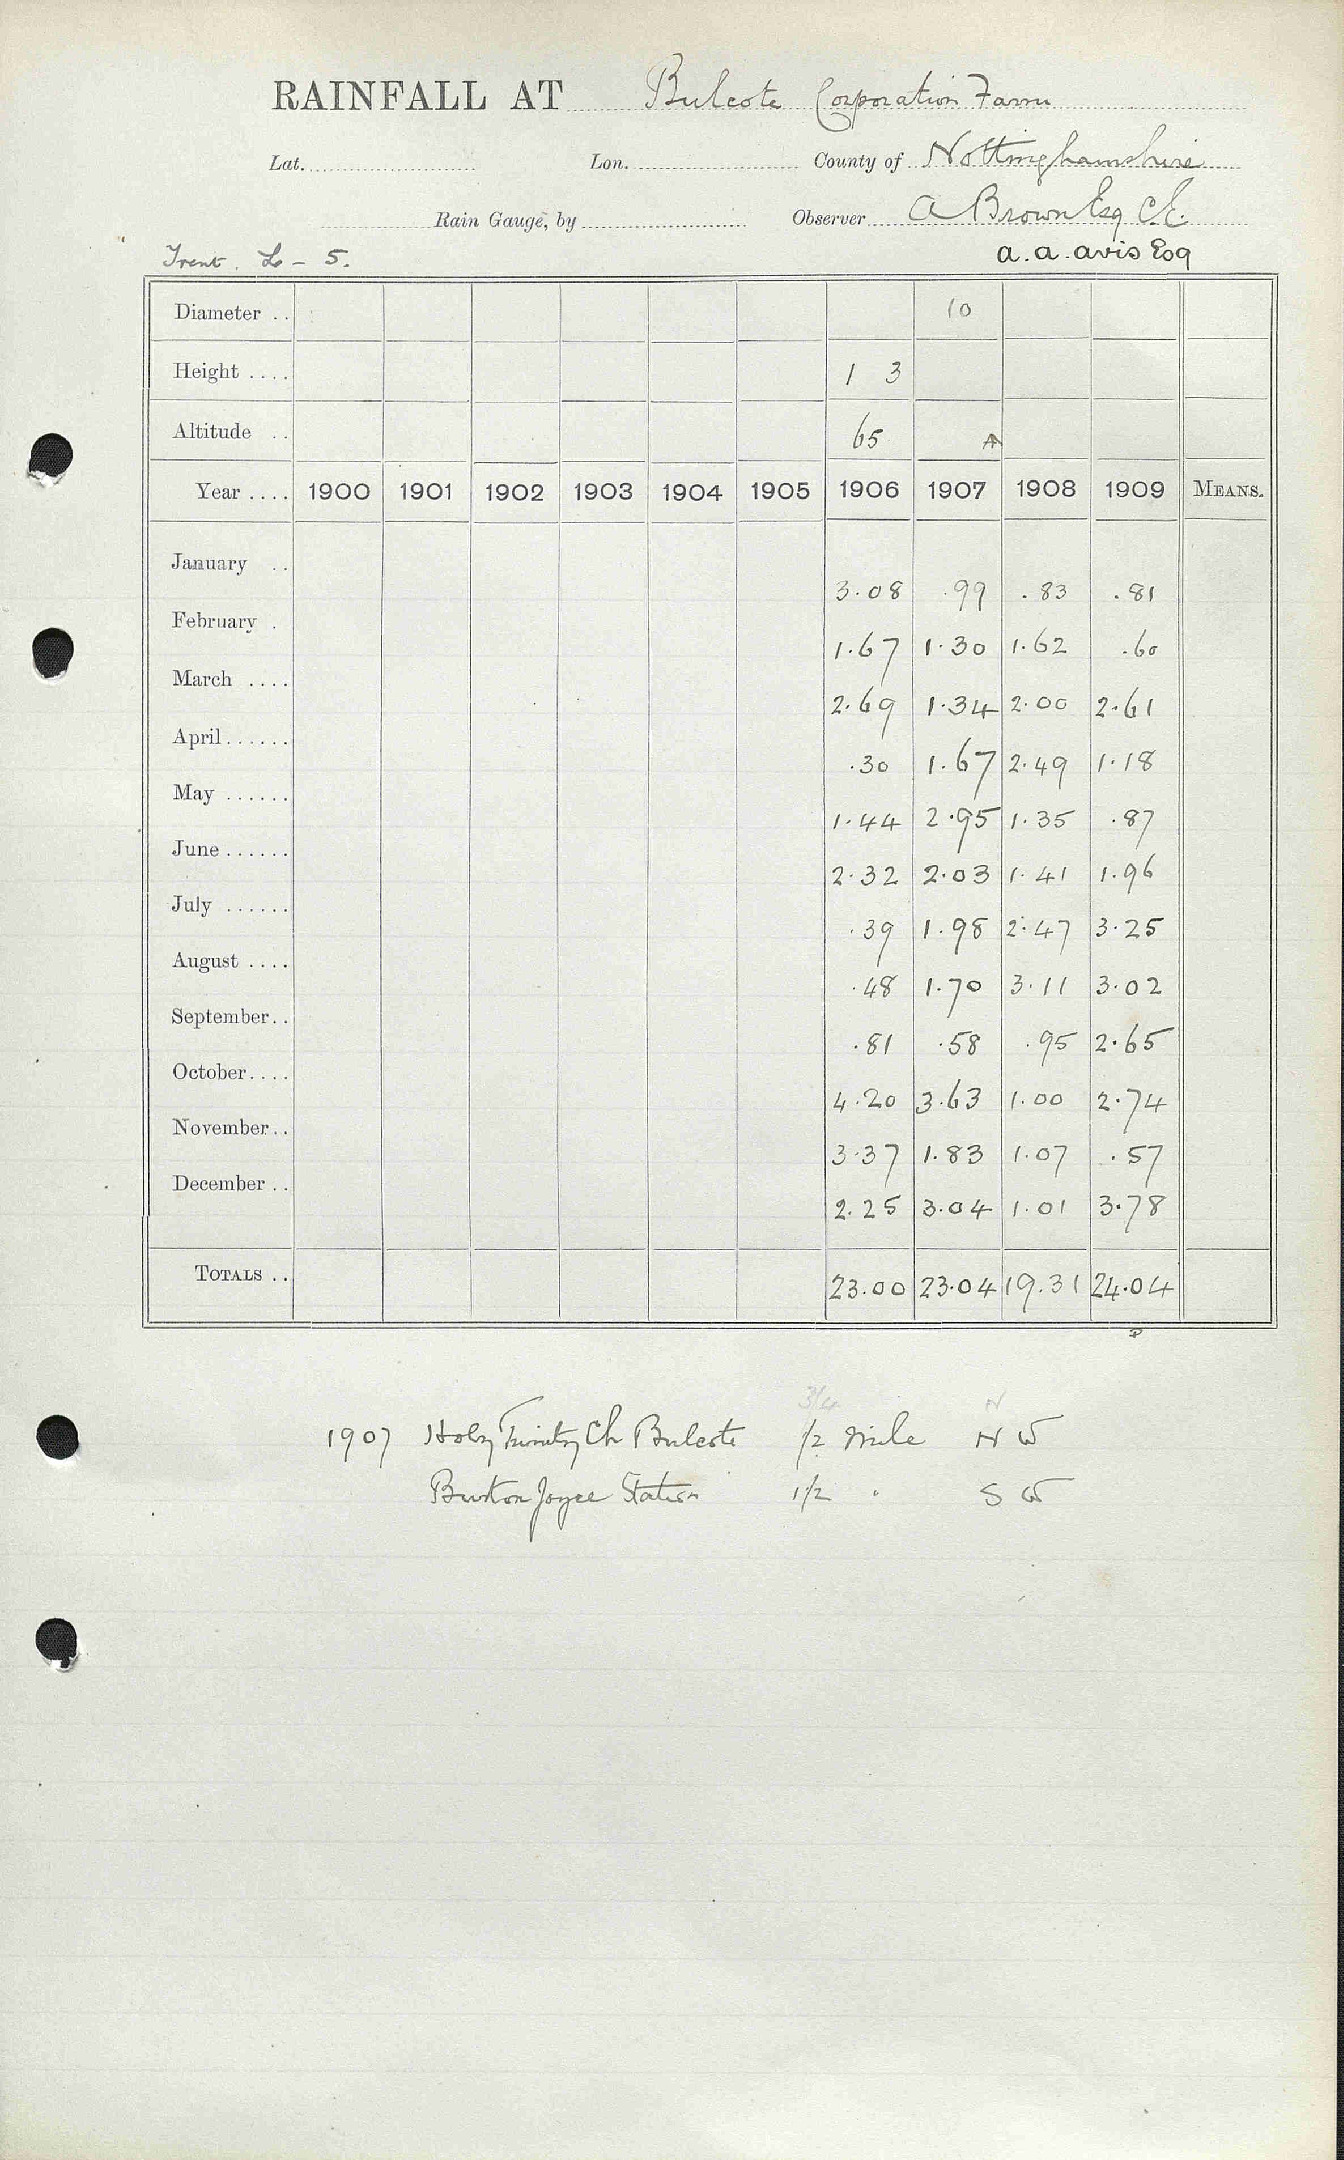 RAINFALL AT Bulcote Corporation Farm
Lat. Lon. County of Nottinghamshire
Rain Gauge, by Observer A Brown Esq C.E.
Trent. L - 5. a. a. avis Esq
Diameter .. 10
Height .... 1 3
Altitude .. 65 A
Year .... 1900 1901 1902 1903 1904 1905 1906 1907 1908 1909 MEANS.
January .. 3.08 .99 .83 .81
February . 1.67 1.30 1.62 .60
March .... 2.69 1.34 2.00 2.61
April ...... .30 1.67 2.49 1.18
May ...... 1.44 2.95 1.35 .87
June ...... 2.32 2.03 1.41 1.96
July ...... .39 1.98 2.47 3.25
August .... .48 1.70 3.11 3.02
September .. .81 .58 .95 2.65
October .... 4.20 3.63 1.00 2.74
November .. 3.37 1.83 1.07 .57
December .. 2.25 3.04 1.01 3.78
TOTALS .. 23.00 23.04 19.31 24.04
3/4 N
1907 Holy Trinity Ch Bulcote 1/2 Mile N W
Burton Joyce Station 1 1/2 " S W